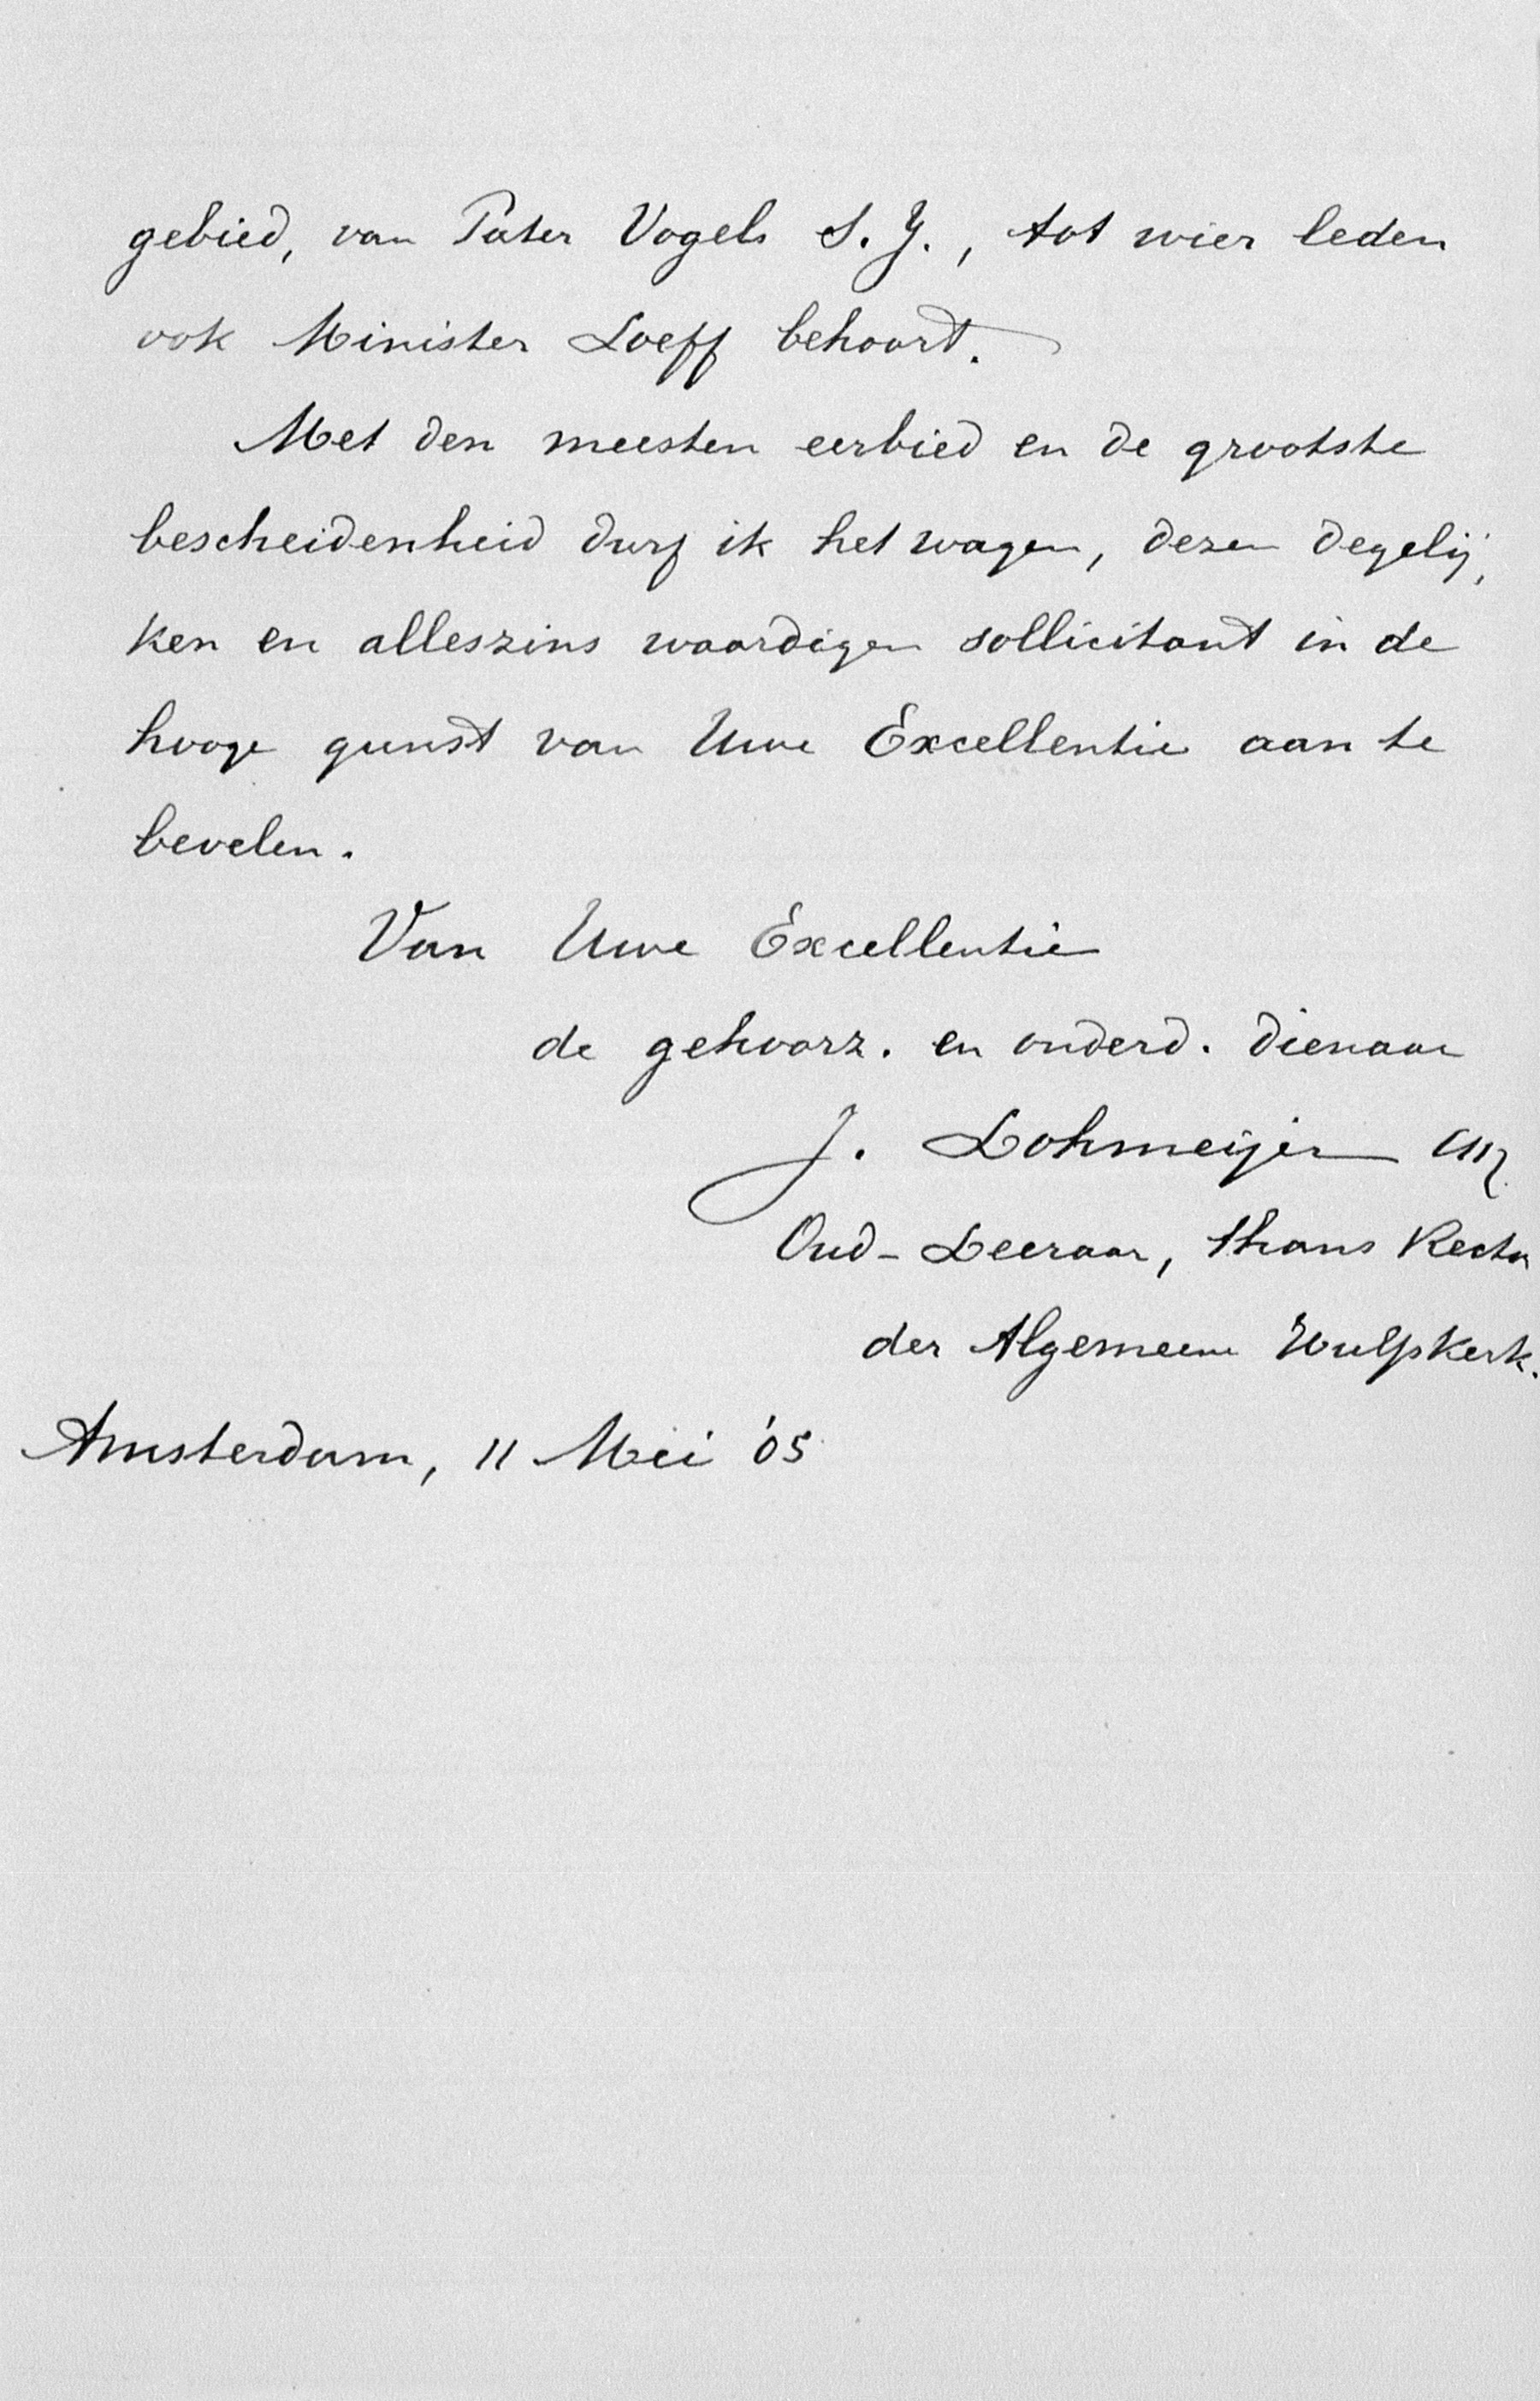 gebied, van Pater Vogels S. J., tot wier leden
ook Minister Loeff behoort.
Met den meesten eerbied en de grootste
bescheidenheid durf ik het wagen, dezen degelij,
ken en alleszins waardigen sollicitant in de
hooge gunst van Uwe Excellentie aan te
bevelen.
Van Uwe Excellentie
de gehoorz. en onderd. dienaar
J. Lohmeijer
Oud-Leeraar, thans Rector
der Algemeene Hulpkerk.
Amsterdam, 11 Mei '05